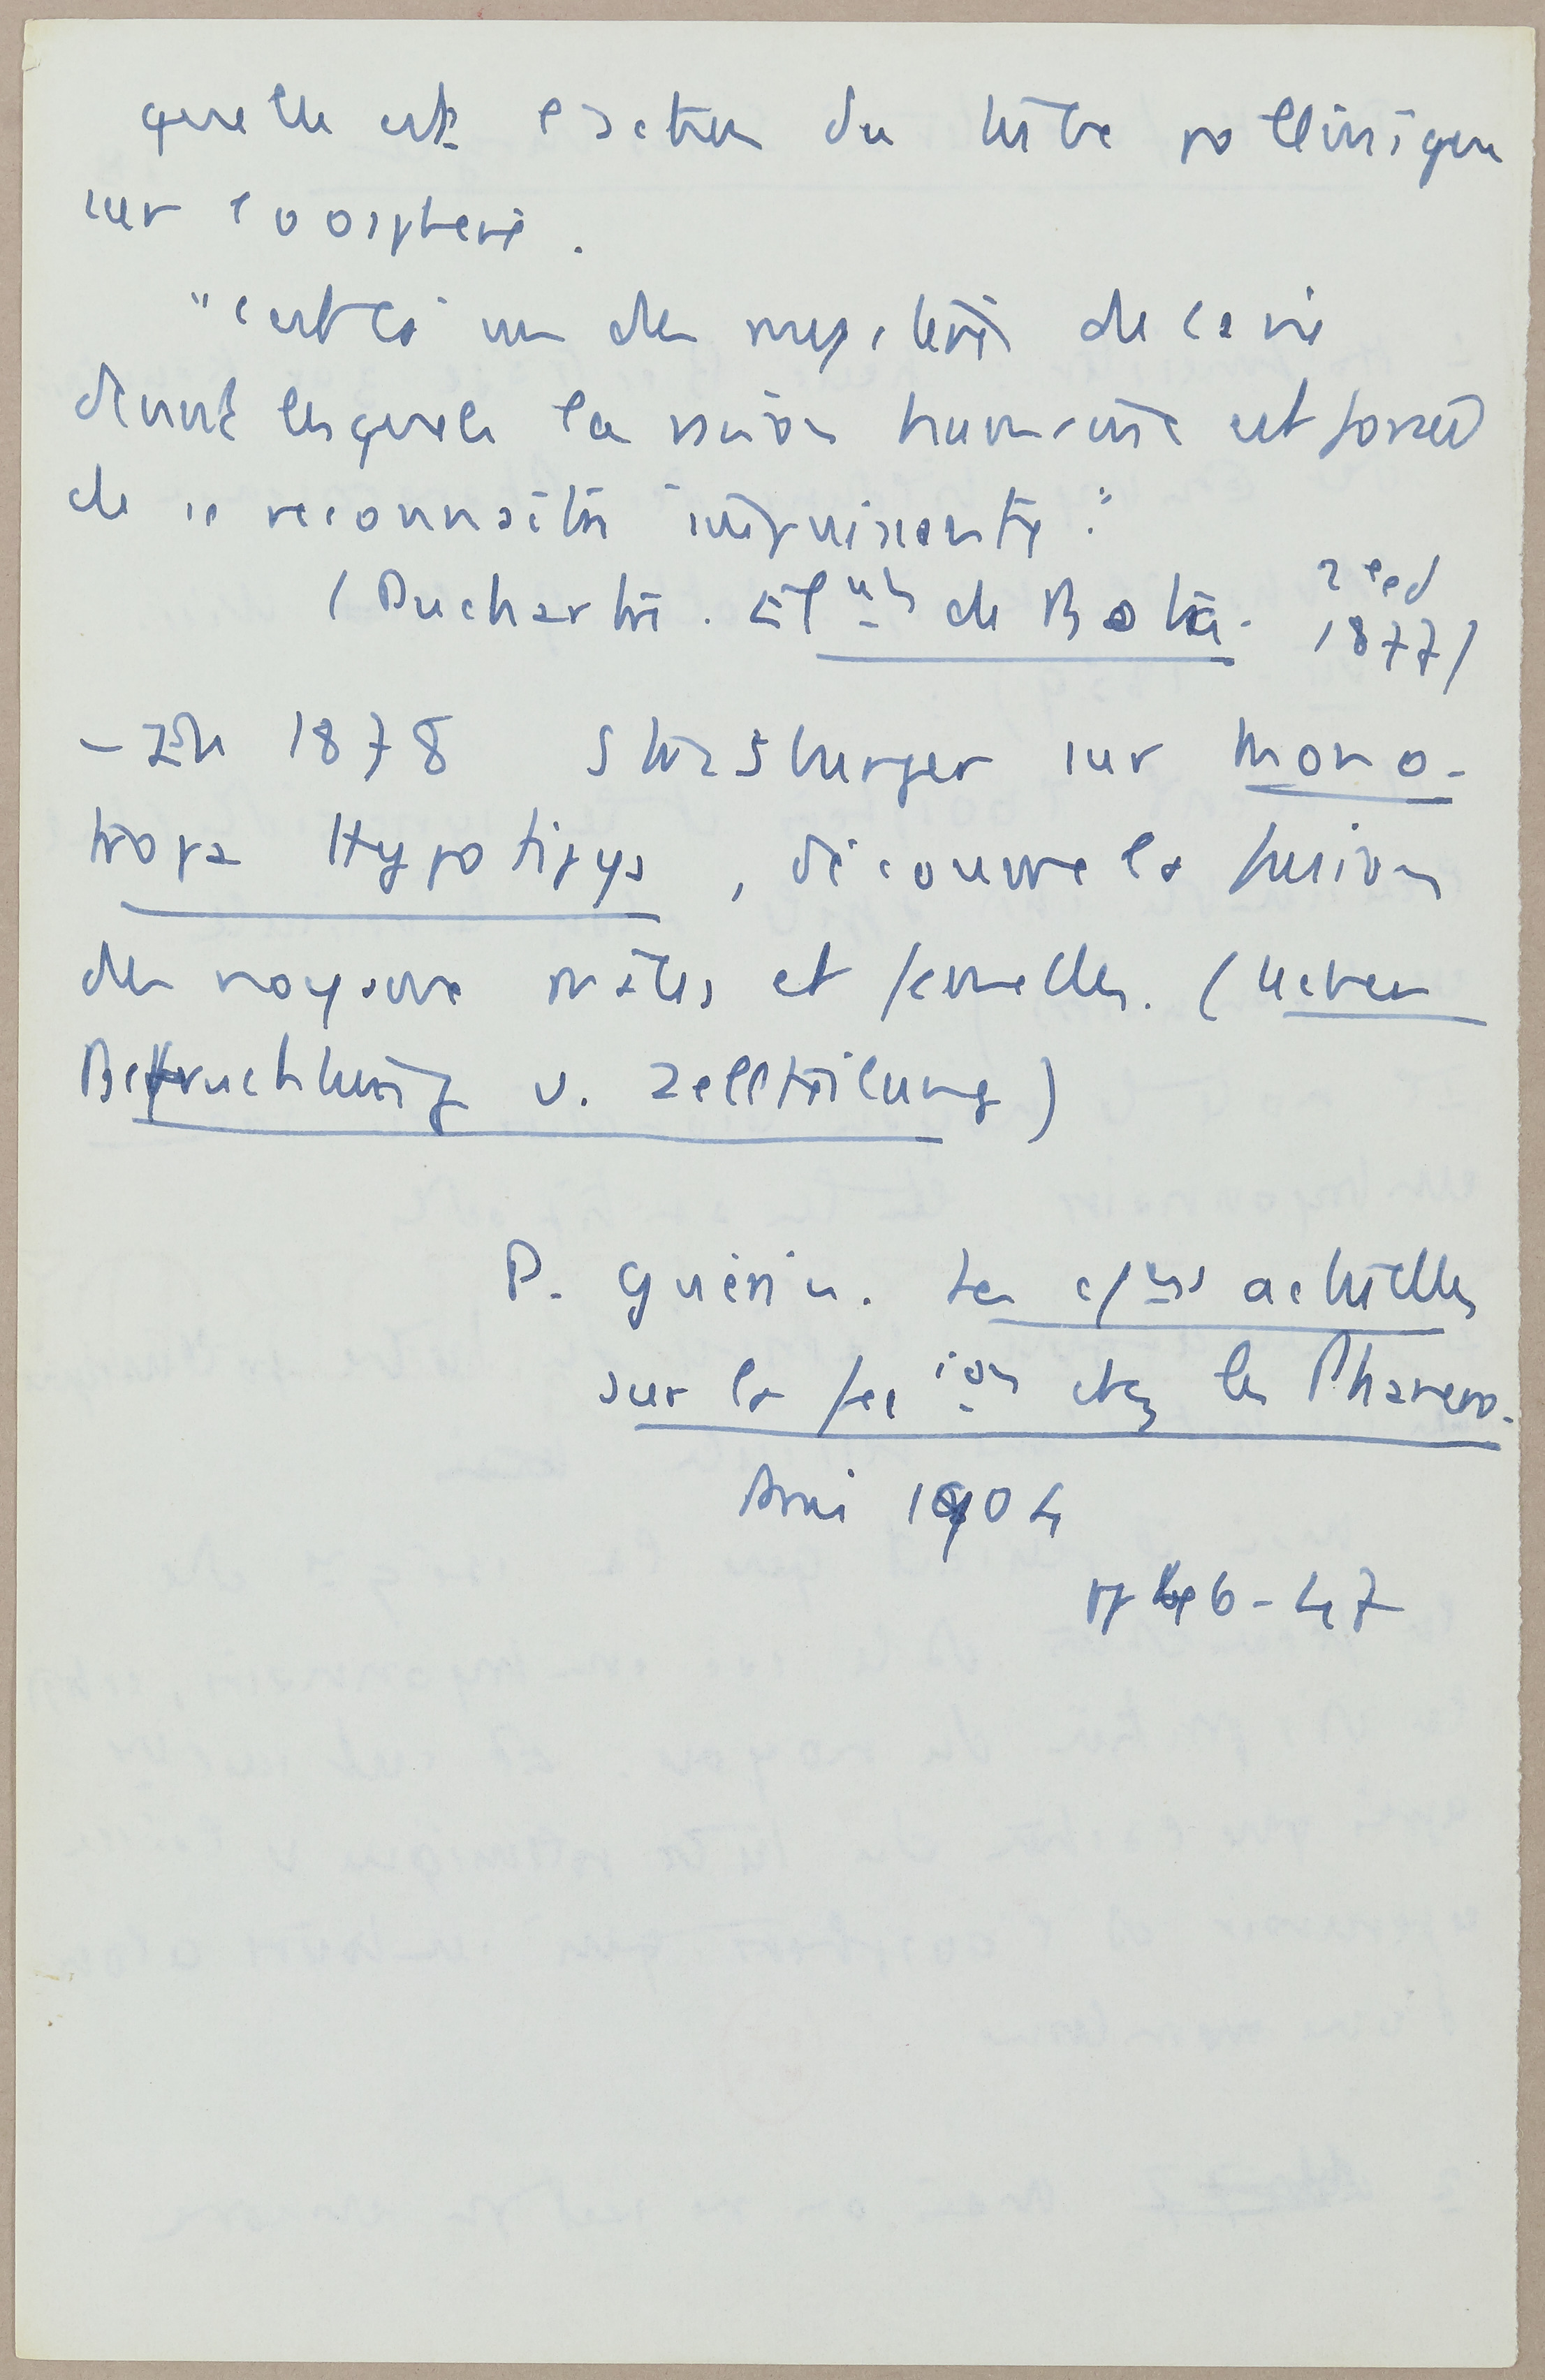 quelle est l'action du tube pollinique
sur l'oosphère.
"c'est là un des mystères de la vie
devant lesquels la raison humaine est forcée
de se reconnaître impuissante."
(Duchartre. El^nts de Bota. 2e ed
1877)
- En 1878 Strasburger sur Mono-
tropa Hypopitys, découvre la fusion
des noyaux mâles et femelles. (Ueber
Befruchtung u. Zellteilung)
P. Guérin. Les c/ces actuelles
sur la fec^ion chez les Phanero.
1904
pp 46-47